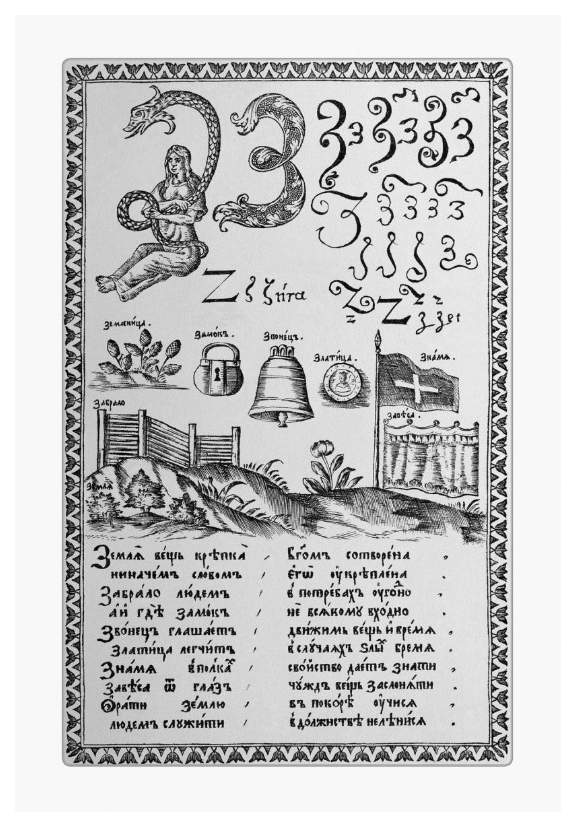 З з з з з з з
З з з з з
Z ζ ζи́та Z z z
Земляни́ца.
Замо́къ.
Звоне́цъ.
Злати́ца
Зна́мѧ.
Забрало
Завѣ́са.
Землѧ̀
Землѧ̀ ве́щь крѣпка̀ , бг҃омъ сотворе́на ,
ниначе́мъ сло́вомъ , є҆гѡ̀ ᲂу҆крѣпле́на .
Забра́ло лю́демъ , в потре́бахъ ᲂуго́дно
а҆й гдѣ̀ замо́къ , не всѧ́кому вхо́дно .
Звоне́цъ глаша́етъ , движимъ ве́щь и҆ вре́мѧ ,
Златица легчи́тъ , в слу́чаѧхъ ѕлы̀ бремѧ .
Зна́мѧ в полка̀ , сво́йство дае́тъ зна́ти ,
Завѣ́са ѿ гла́зъ , чу́ждъ ве́щь заслонѧ́ти .
Ѻ҆ра́ти зе́млю , въ поко́рѣ ᲂу҆чи́сѧ ,
лю́демъ служи́ти , в до́лжиствѣ нелѣни́сѧ .